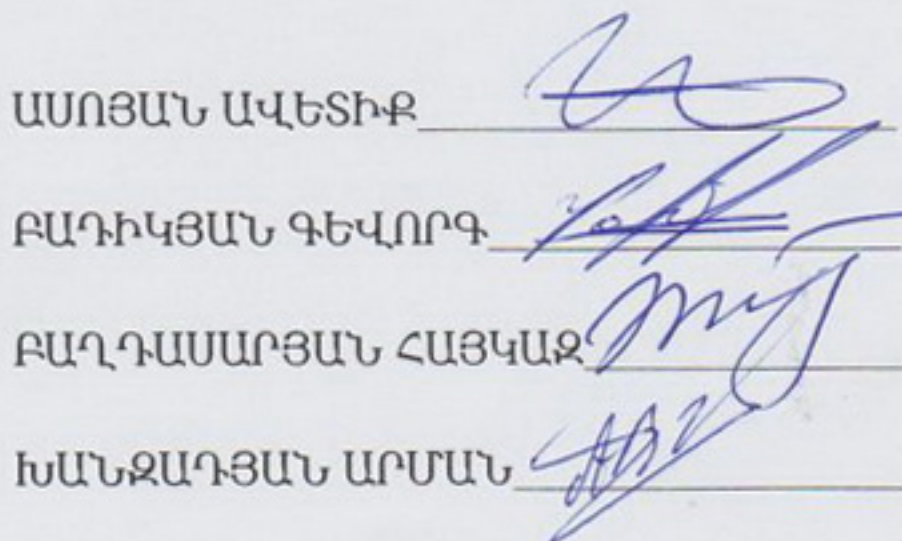 ԱՍՈՅԱՆ ԱՎԵՏԻՔ
ԲԱԴԻԿՅԱՆ ԳԵՎՈՐԳ
ԲԱՂԴԱՍԱՐՅԱՆ ՀԱՅԿԱԶ
ԽԱՆԶԱԴՅԱՆ ԱՐՄԱՆ